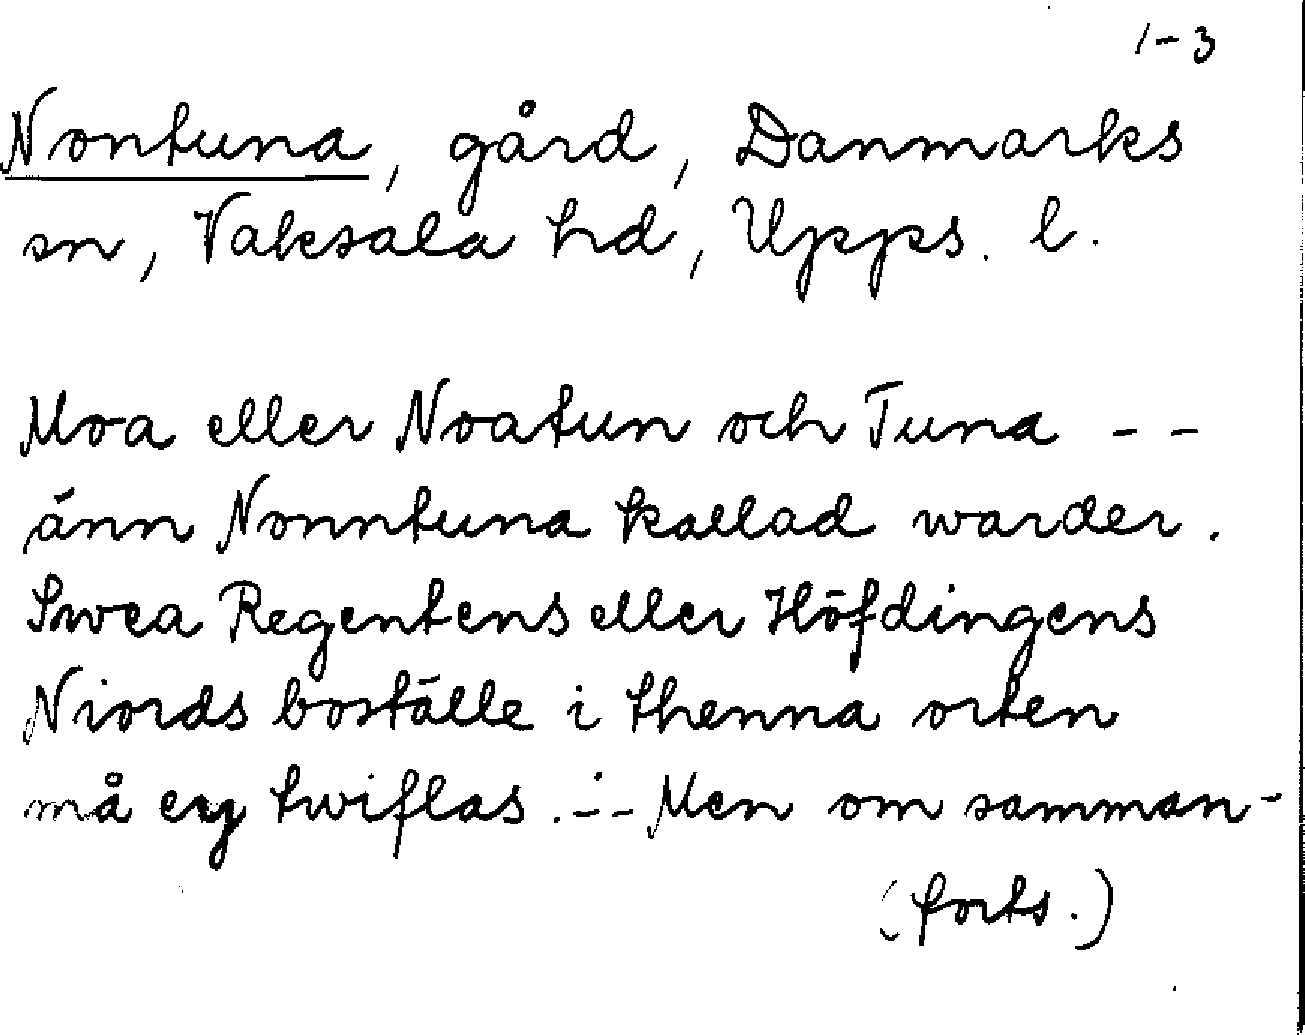 1-3
Nontuna, gård, Danmarks
sn, Vaksala hd, Upps. l.
Moa eller Noatun och Tuna - -
änn Nonntuna kallad warder.
Swea Regentens eller Höfdingens
Niords boställe i thenna orten
må ey twiflas. - - Men om samman-
(forts.)